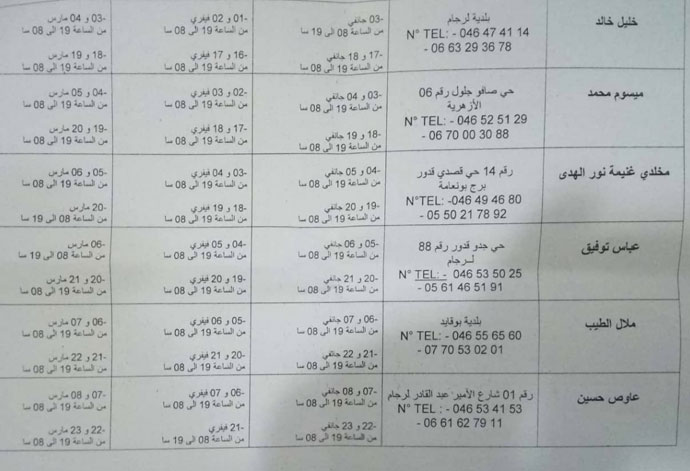 خليل خالد
بلدية لرجام
N° TEL: - 046 47 41 14
- 06 63 29 36 78
-03 جانفي
من الساعة 08 الى 19 سا
-17 و 18 جانفي
من الساعة 19 الى 08 سا
-01 و 02 فيفري
من الساعة 19 الى 08 سا
-16 و 17 فيفري
من الساعة 19 الى 08 سا
-03 و 04 مارس
من الساعة 19 الى 08 سا
-18 و 19 مارس
من الساعة 19 الى 08 سا
ميسوم محمد
حي صافو جلول رقم 06
الأزهرية
N° TEL: - 046 52 51 29
- 06 70 00 30 88
-03 و 04 جانفي
من الساعة 19 الى 08 سا
-18 و 19 جانفي
من الساعة 19 الى 08 سا
-02 و 03 فيفري
من الساعة 19 الى 08 سا
-17 و 18 فيفري
من الساعة 19 الى 08 سا
-04 و 05 مارس
من الساعة 19 الى 08 سا
-19 و 20 مارس
من الساعة 19 الى 08 سا
مخلدي غنيمة نور الهدى
رقم 14 حي قصدي قدور
برج بونعامة
N°TEL: -046 49 46 80
- 05 50 21 78 92
-04 و 05 جانفي
من الساعة 19 الى 08 سا
-19 و 20 جانفي
من الساعة 19 الى 08 سا
-03 و 04 فيفري
من الساعة 19 الى 08 سا
-18 و 19 فيفري
من الساعة 19 الى 08 سا
-05 و 06 مارس
من الساعة 19 الى 08 سا
-20 مارس
من الساعة 19 الى 08 سا
عباس توفيق
حي جدو قدور رقم 88
لـرجام
N° TEL: - 046 53 50 25
- 05 61 46 51 91
-05 و 06 جانفي
من الساعة 19 الى 08 سا
-20 و 21 جانفي
من الساعة 19 الى 08 سا
-04 و 05 فيفري
من الساعة 19 الى 08 سا
-19 و 20 فيفري
من الساعة 19 الى 08 سا
-06 مارس
من الساعة 08 الى 19 سا
-20 و 21 مارس
من الساعة 19 الى 08 سا
ملال الطيب
بلدية بوقايد
N° TEL: - 046 55 65 60
- 07 70 53 02 01
-06 و 07 جانفي
من الساعة 19 الى 08 سا
-21 و 22 جانفي
من الساعة 19 الى 08 سا
-05 و 06 فيفري
من الساعة 19 الى 08 سا
-20 و 21 فيفري
من الساعة 19 الى 08 سا
-06 و 07 مارس
من الساعة 19 الى 08 سا
-21 و 22 مارس
من الساعة 19 الى 08 سا
عاوص حسين
رقم 01 شارع الأمير عبد القادر لرجام
N° TEL : - 046 53 41 53
- 06 61 62 79 11
-07 و 08 جانفي
من الساعة 19 الى 08 سا
-22 و 23 جانفي
من الساعة 19 الى 08 سا
-06 و 07 فيفري
من الساعة 19 الى 08 سا
-21 فيفري
من الساعة 08 الى 19 سا
-07 و 08 مارس
من الساعة 19 الى 08 سا
-22 و 23 مارس
من الساعة 19 الى 08 سا